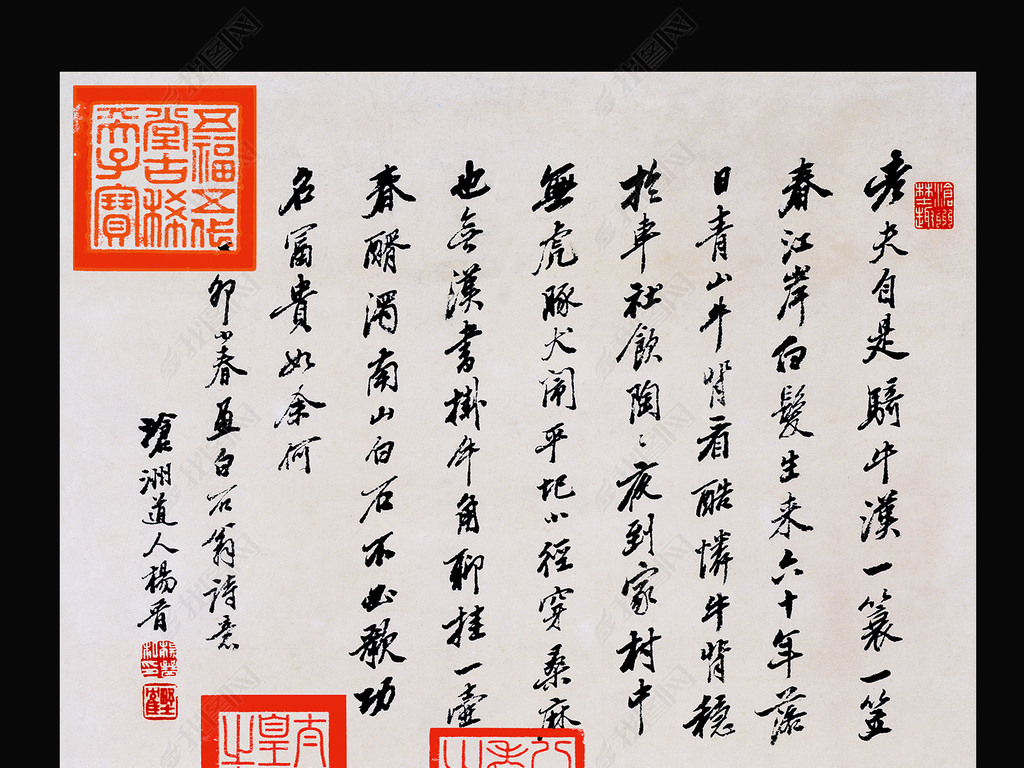 老夫自是騎牛漢一簑一笠
春江岸白髮生來六十年落
日青山牛背看酷憐牛背穩
於車社飲陶〻夜到家村中
無虎豚犬闹平圯小徑穿桑麻
也無漢書掛牛角聊挂一壺
春醑濁南山白石不必歌功
名富貴如余何
卯小春画白石翁詩意
滄洲道人楊晋
五福五代
堂古稀
天子寶
太
皇
之